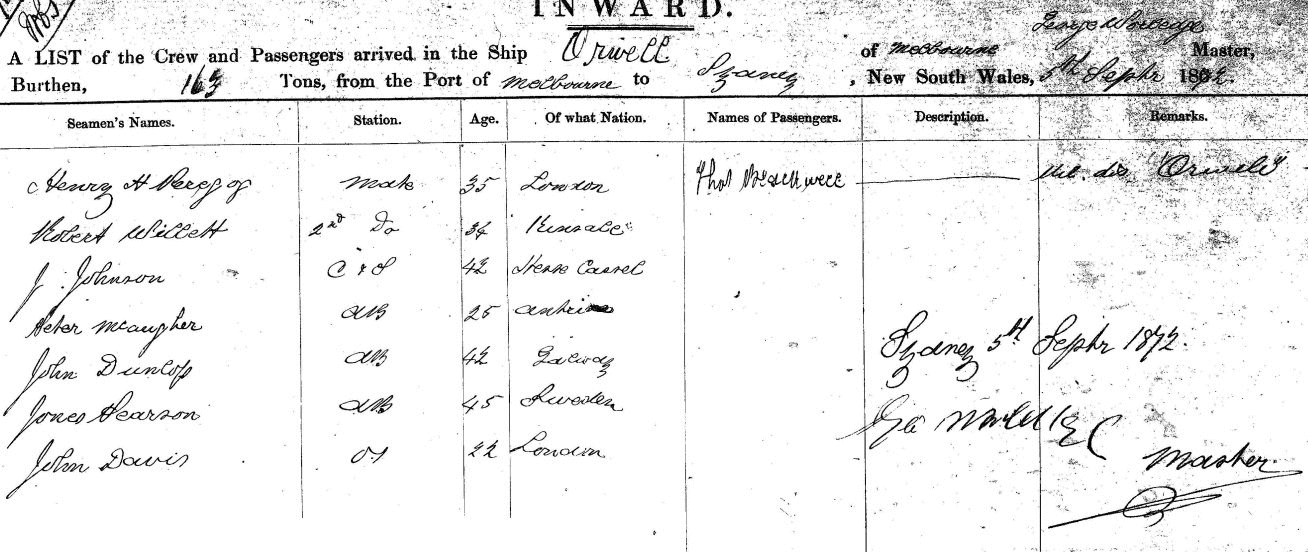 INWARD.
A LIST of the Crew and Passengers arrived in the Ship Orwell of Melbourne George Master,
Burthen, 163 Tons, from the Port of Melbourne to Sydney, New South Wales, 5th Septr 1872.
Seamen's Names. Station. Age. Of what Nation. Names of Passengers. Description. Remarks.
Henry H mate 35 London Thos "Orwell"
Robert Willett 2nd Do 34 Kinsale
J. Johnson C & S 42 Hesse Cassel
Peter McAugher AB 25 Antrim
John Dunlop AB 42 Galway Sydney 5th Septr 1872.
Jones Pearson AB 45 Sweden Geo
John Davis OS 22 London Master